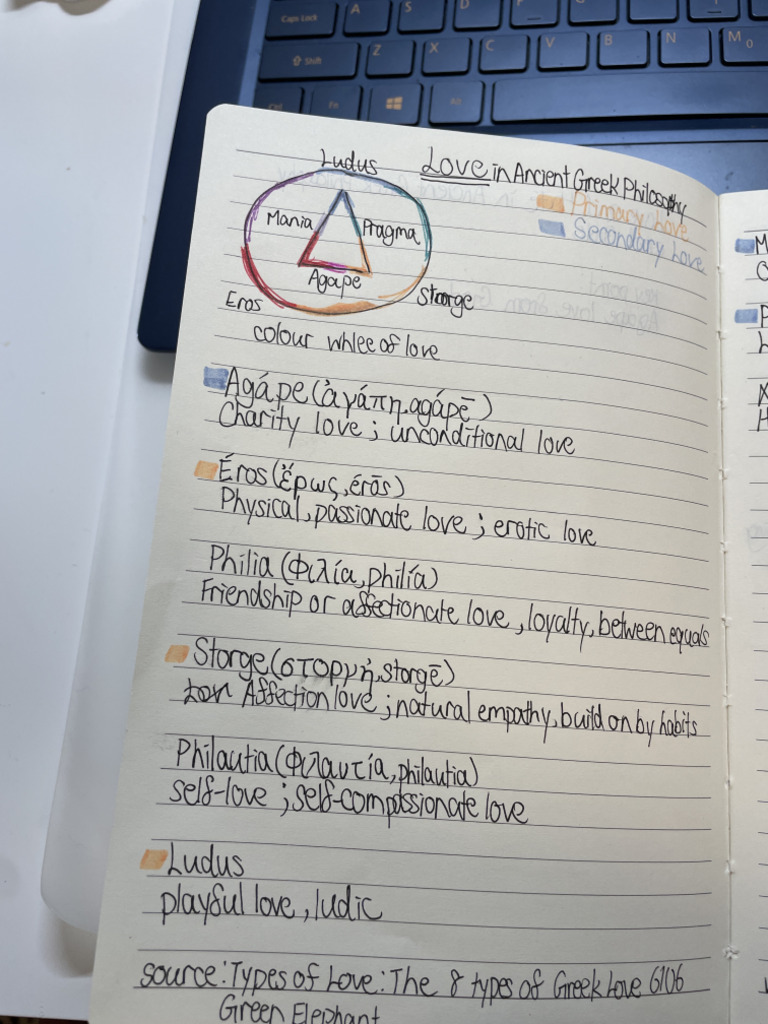 Caps Lock
A
S
D
F
Shift
Z
X
C
V
B
N
M
Fn
Alt
Love in Ancient Greek Philosophy
Primary Love
Secondary Love
Ludus
Mania
Pragma
Agape
Eros
Storge
colour whlee of love
Agápe (ἀγάπη, agápē)
Charity love ; unconditional love
Éros (ἔρως, érōs)
Physical, passionate love ; erotic love
Philia (Φιλία, philía)
Friendship or affectionate love, loyalty, between equals
Storge (στοργή, storgē)
Affection love ; natural empathy, build on by habits
Philautia (Φιλαυτία, philautia)
self-love ; self-compassionate love
Ludus
playful love, ludic
source: Types of Love: The 8 types of Greek Love 6106
Green Elephant